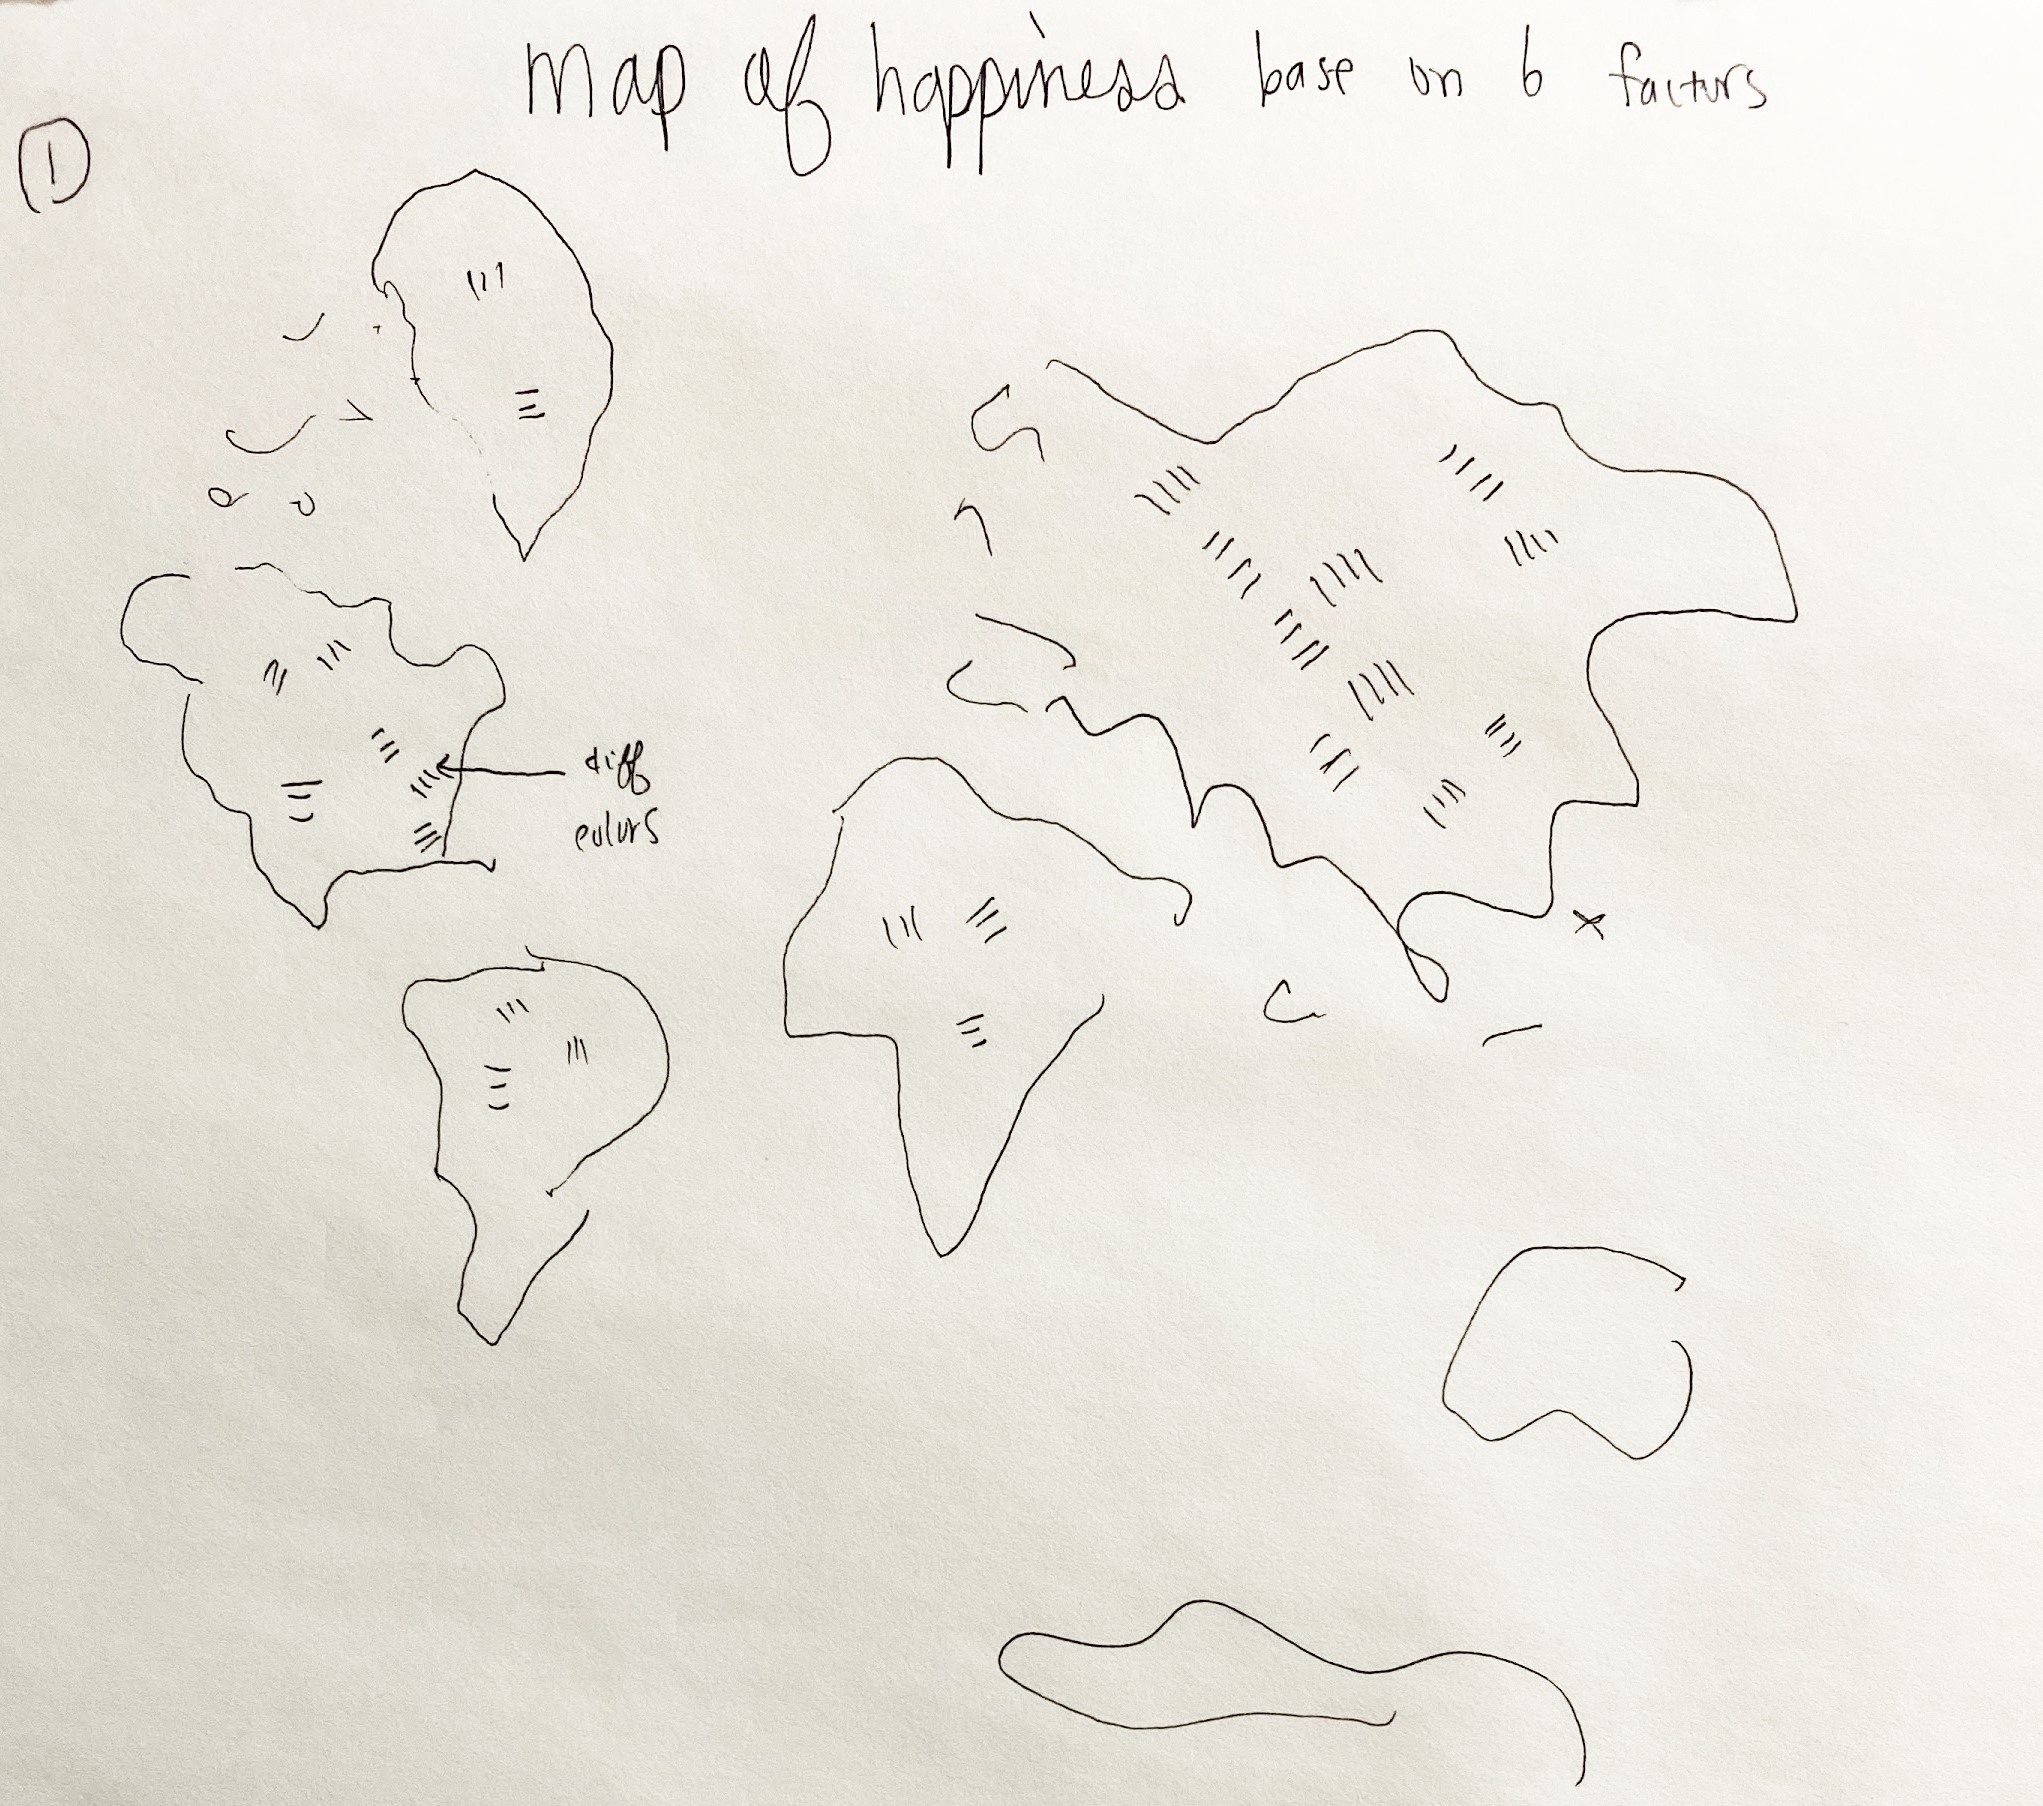 map of happiness base on 6 factors
1
diff
colors